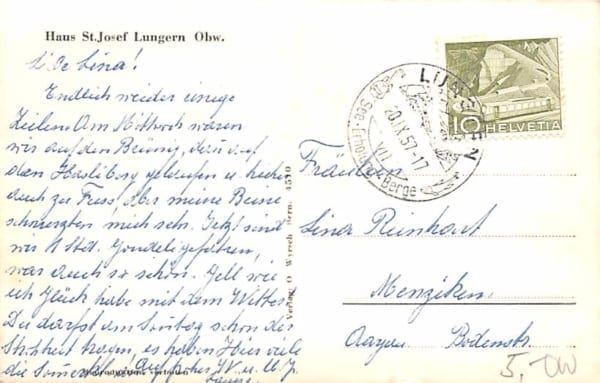 Haus St.Josef Lungern Obw.
Liebe Lina!
Endlich wieder einige
Zeilen. Am Mittwoch waren
wir auf den Brünig, dann auf
den Hasliberg gefahren u.
auch zu Fuss, aber meine Beine
schmerzten mich sehr. Jetzt sind
wir 1 Std. Gondeli gefahren,
was auch so schön. Gell wie
ich Glück habe mit dem Wetter.
Du darfst am Sonntag schon der
tragen, es haben hier viele
die
Verlag: O. Wyrsch Bern. 4510
LUNGERN
20.IX.57-17
See
Berge
10
HELVETIA
Fräulein
Lina Reinhart
Menziken
Aargau Bodenstr.
5.-